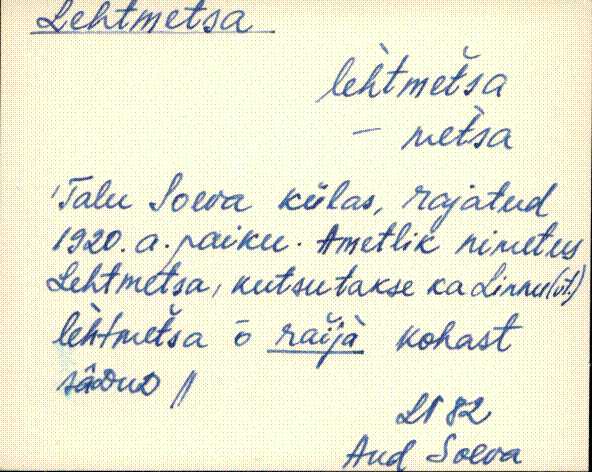 Lehtmetsa
lèhtmetša
- metša
Talu Soeva külas, rajatud
1920. a. paiku. Ametlik nimetus
Lehtmetsa, kutsutakse ka Linnu (vt.)
lèhtmetša ō raijà kohast
sǡDuD //
Aud Soeva